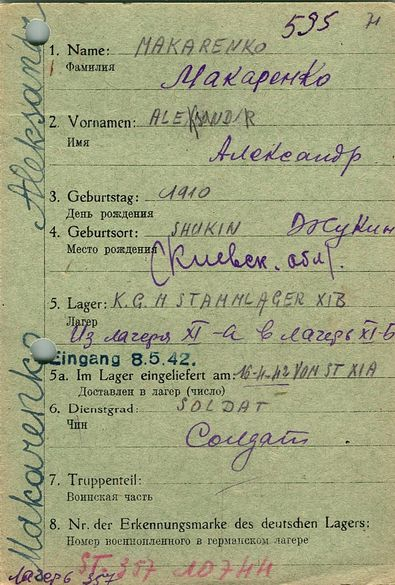 595 н
1. Name: MAKARENKO
Фамилия
Макаренко
2. Vornamen: ALEKSANDER
Имя
Александр
3. Geburtstag: 1910
День рождения
4. Geburtsort: SHUKIN Жукин
Место рождения
(Киевск. обл.
5. Lager: K.G.M STAMMLAGER XI B
Лагер
Из лагеря XI-A в лагерь XI-Б
Eingang 8.5.42.
5a. Im Lager eingeliefert am: 16-4-42 VON ST XI A
Доставлен в лагер (число)
6. Dienstgrad: SOLDAT
Чин
Солдат
7. Truppenteil:
Воинская часть
8. Nr. der Erkennungsmarke des deutschen Lagers:
Номер военнопленного в германском лагере
ST. 357 10744
Лагерь 357
Makarenko Aleksandr